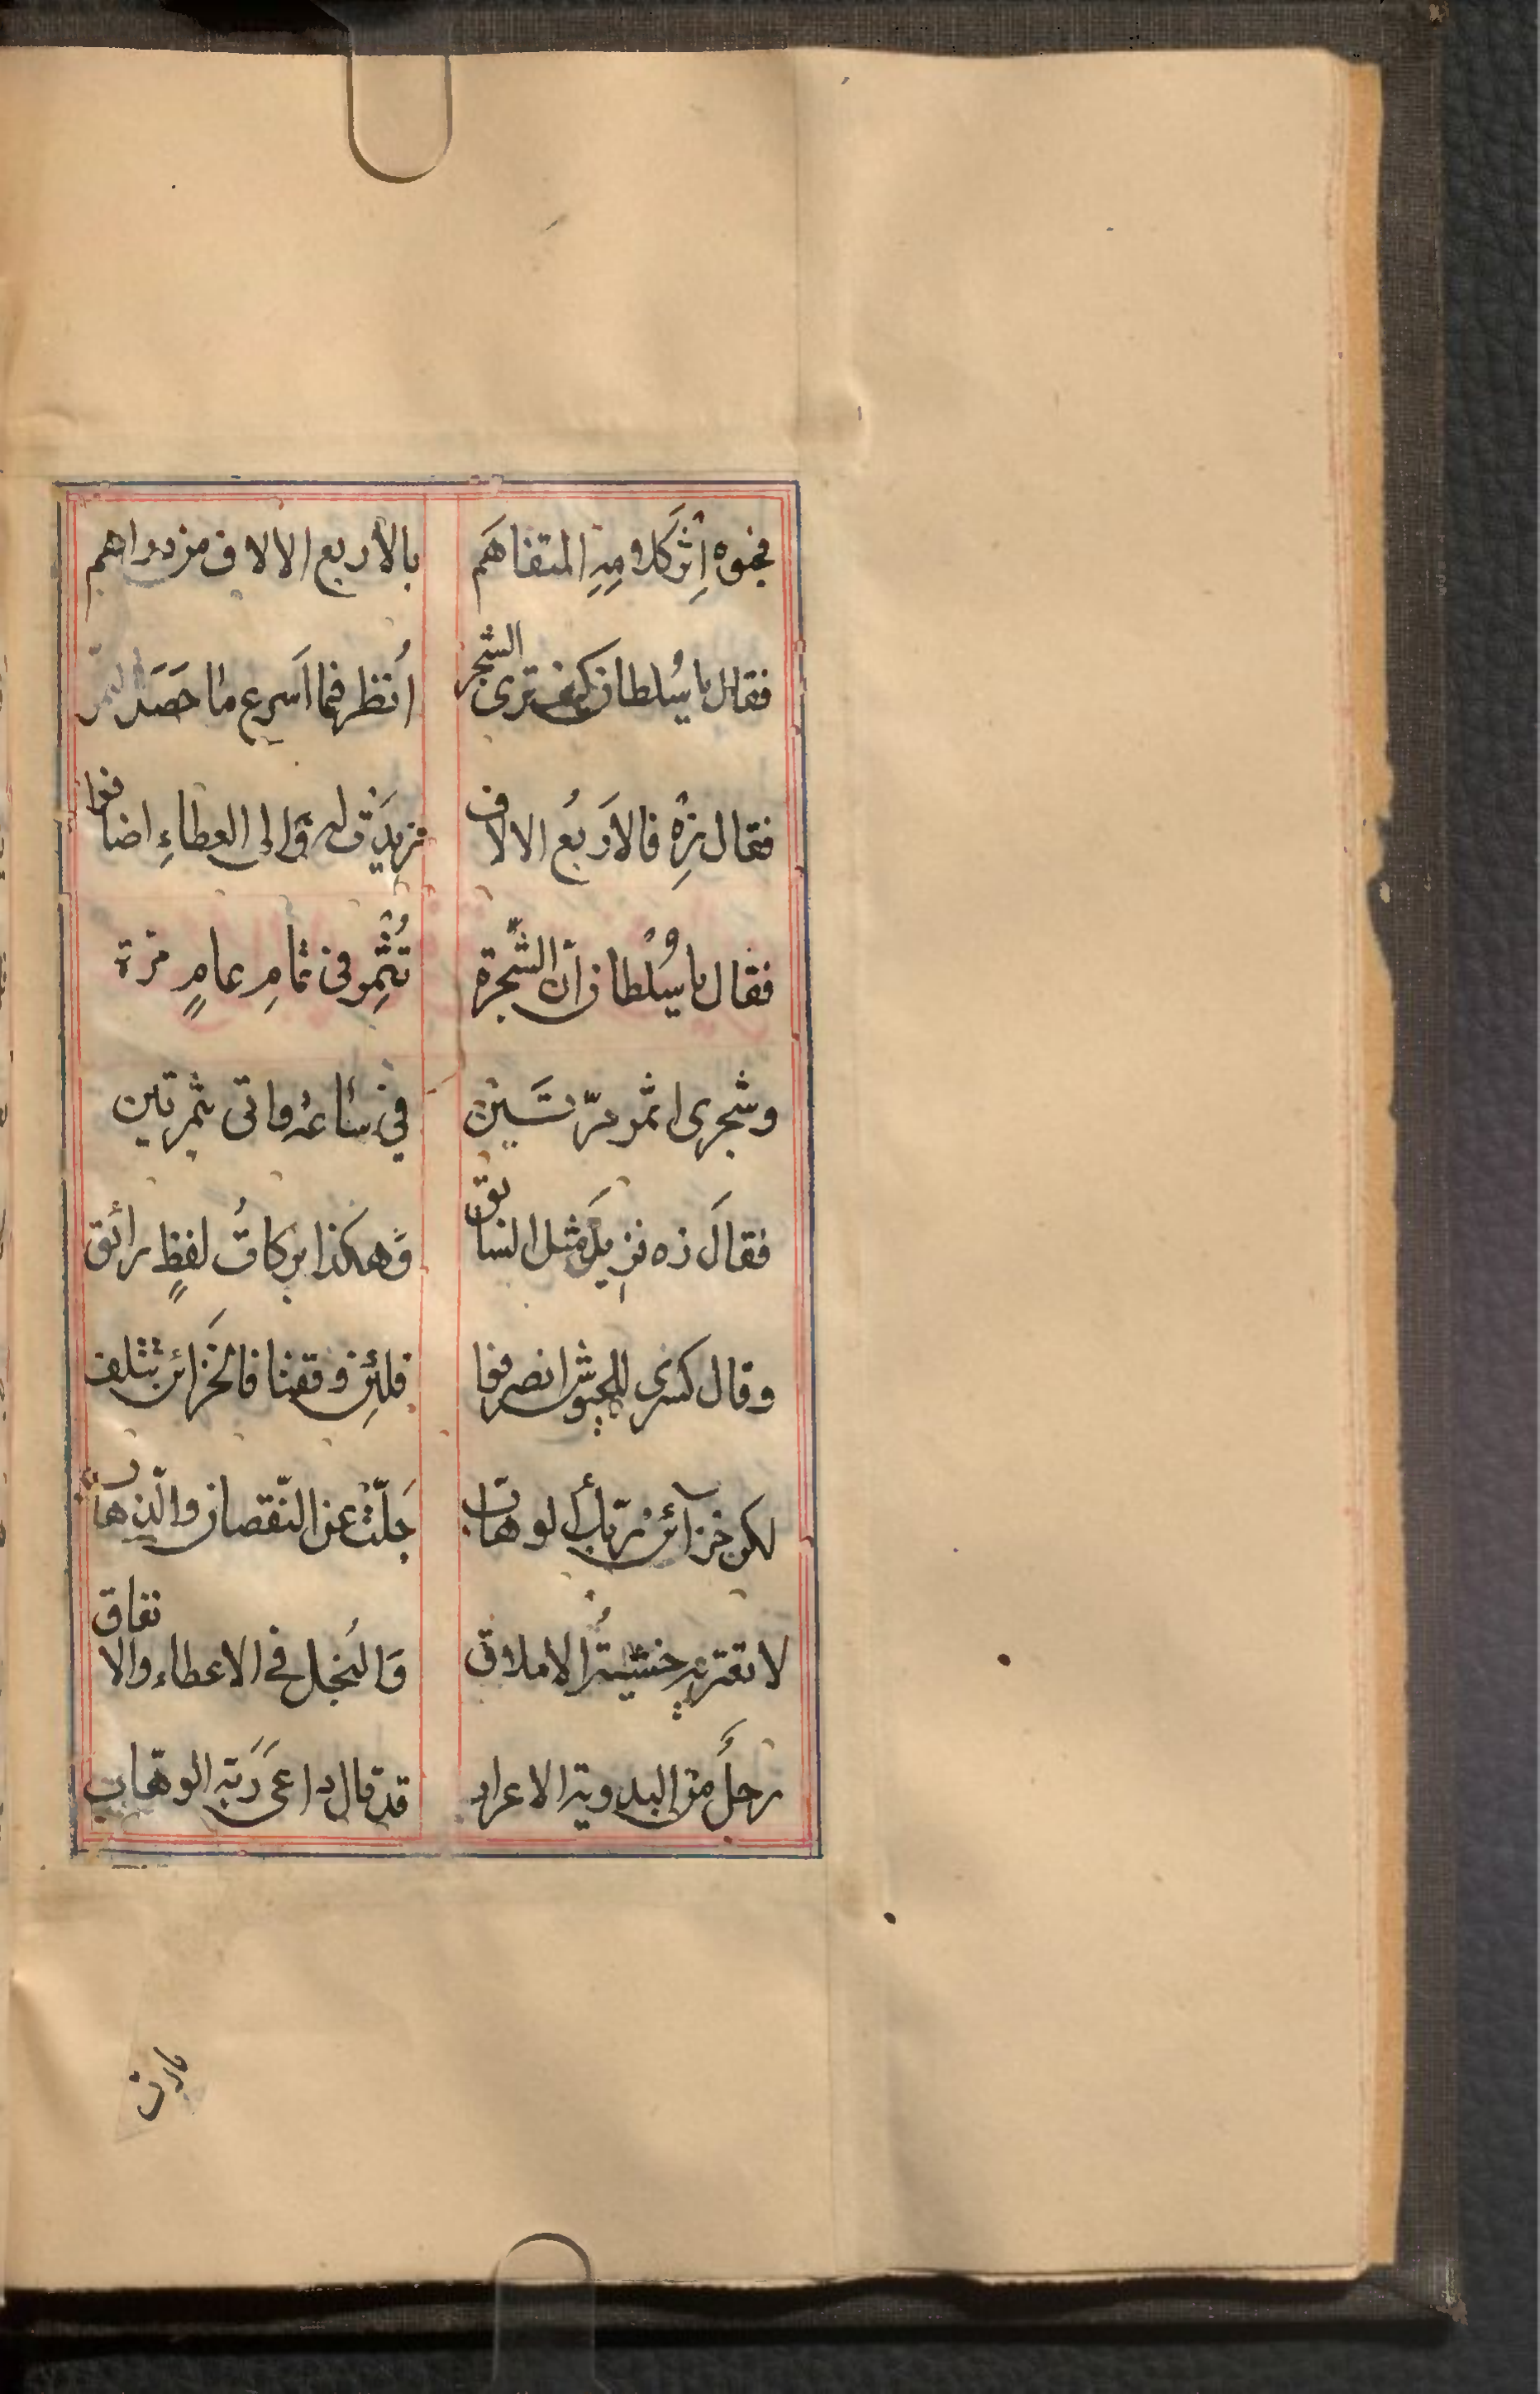 فجوه اِثر كلامِهِ المتفاهَم بالأربع الالاف من دراهم
فقال يا سُلطان كيف ترى الشجر اُنظر فما اَسرع ما حَصَد الثمر
فقال زِه فالاَربَع الالاف نزيدَن له وَالى العطاءِ اضافوا
فقال يا سُلْطان انّ الشّجرة تُثْمِر فى تمامِ عامٍ مرة
وشجرى اثمر مرّتَين في ساعة واتى ثمرتين
فقالَ زه نزيدَ مثل السابق وَهكذا بركاتُ لفظٍ رائق
وقال كسرى للجيوش انصرفوا فلئِن وقفنا فالخَزائن تتلف
لكن خزآئن ربّك الوهاب جَلّتْ عن النّقصان والذّهاب
لا تعتريه خشيةُ الاملاق وَالبُخل في الاعطاء والانفاق
رجلٌ من البدوية الاعراب قد قال داعىَ رَبّه الوهّاب